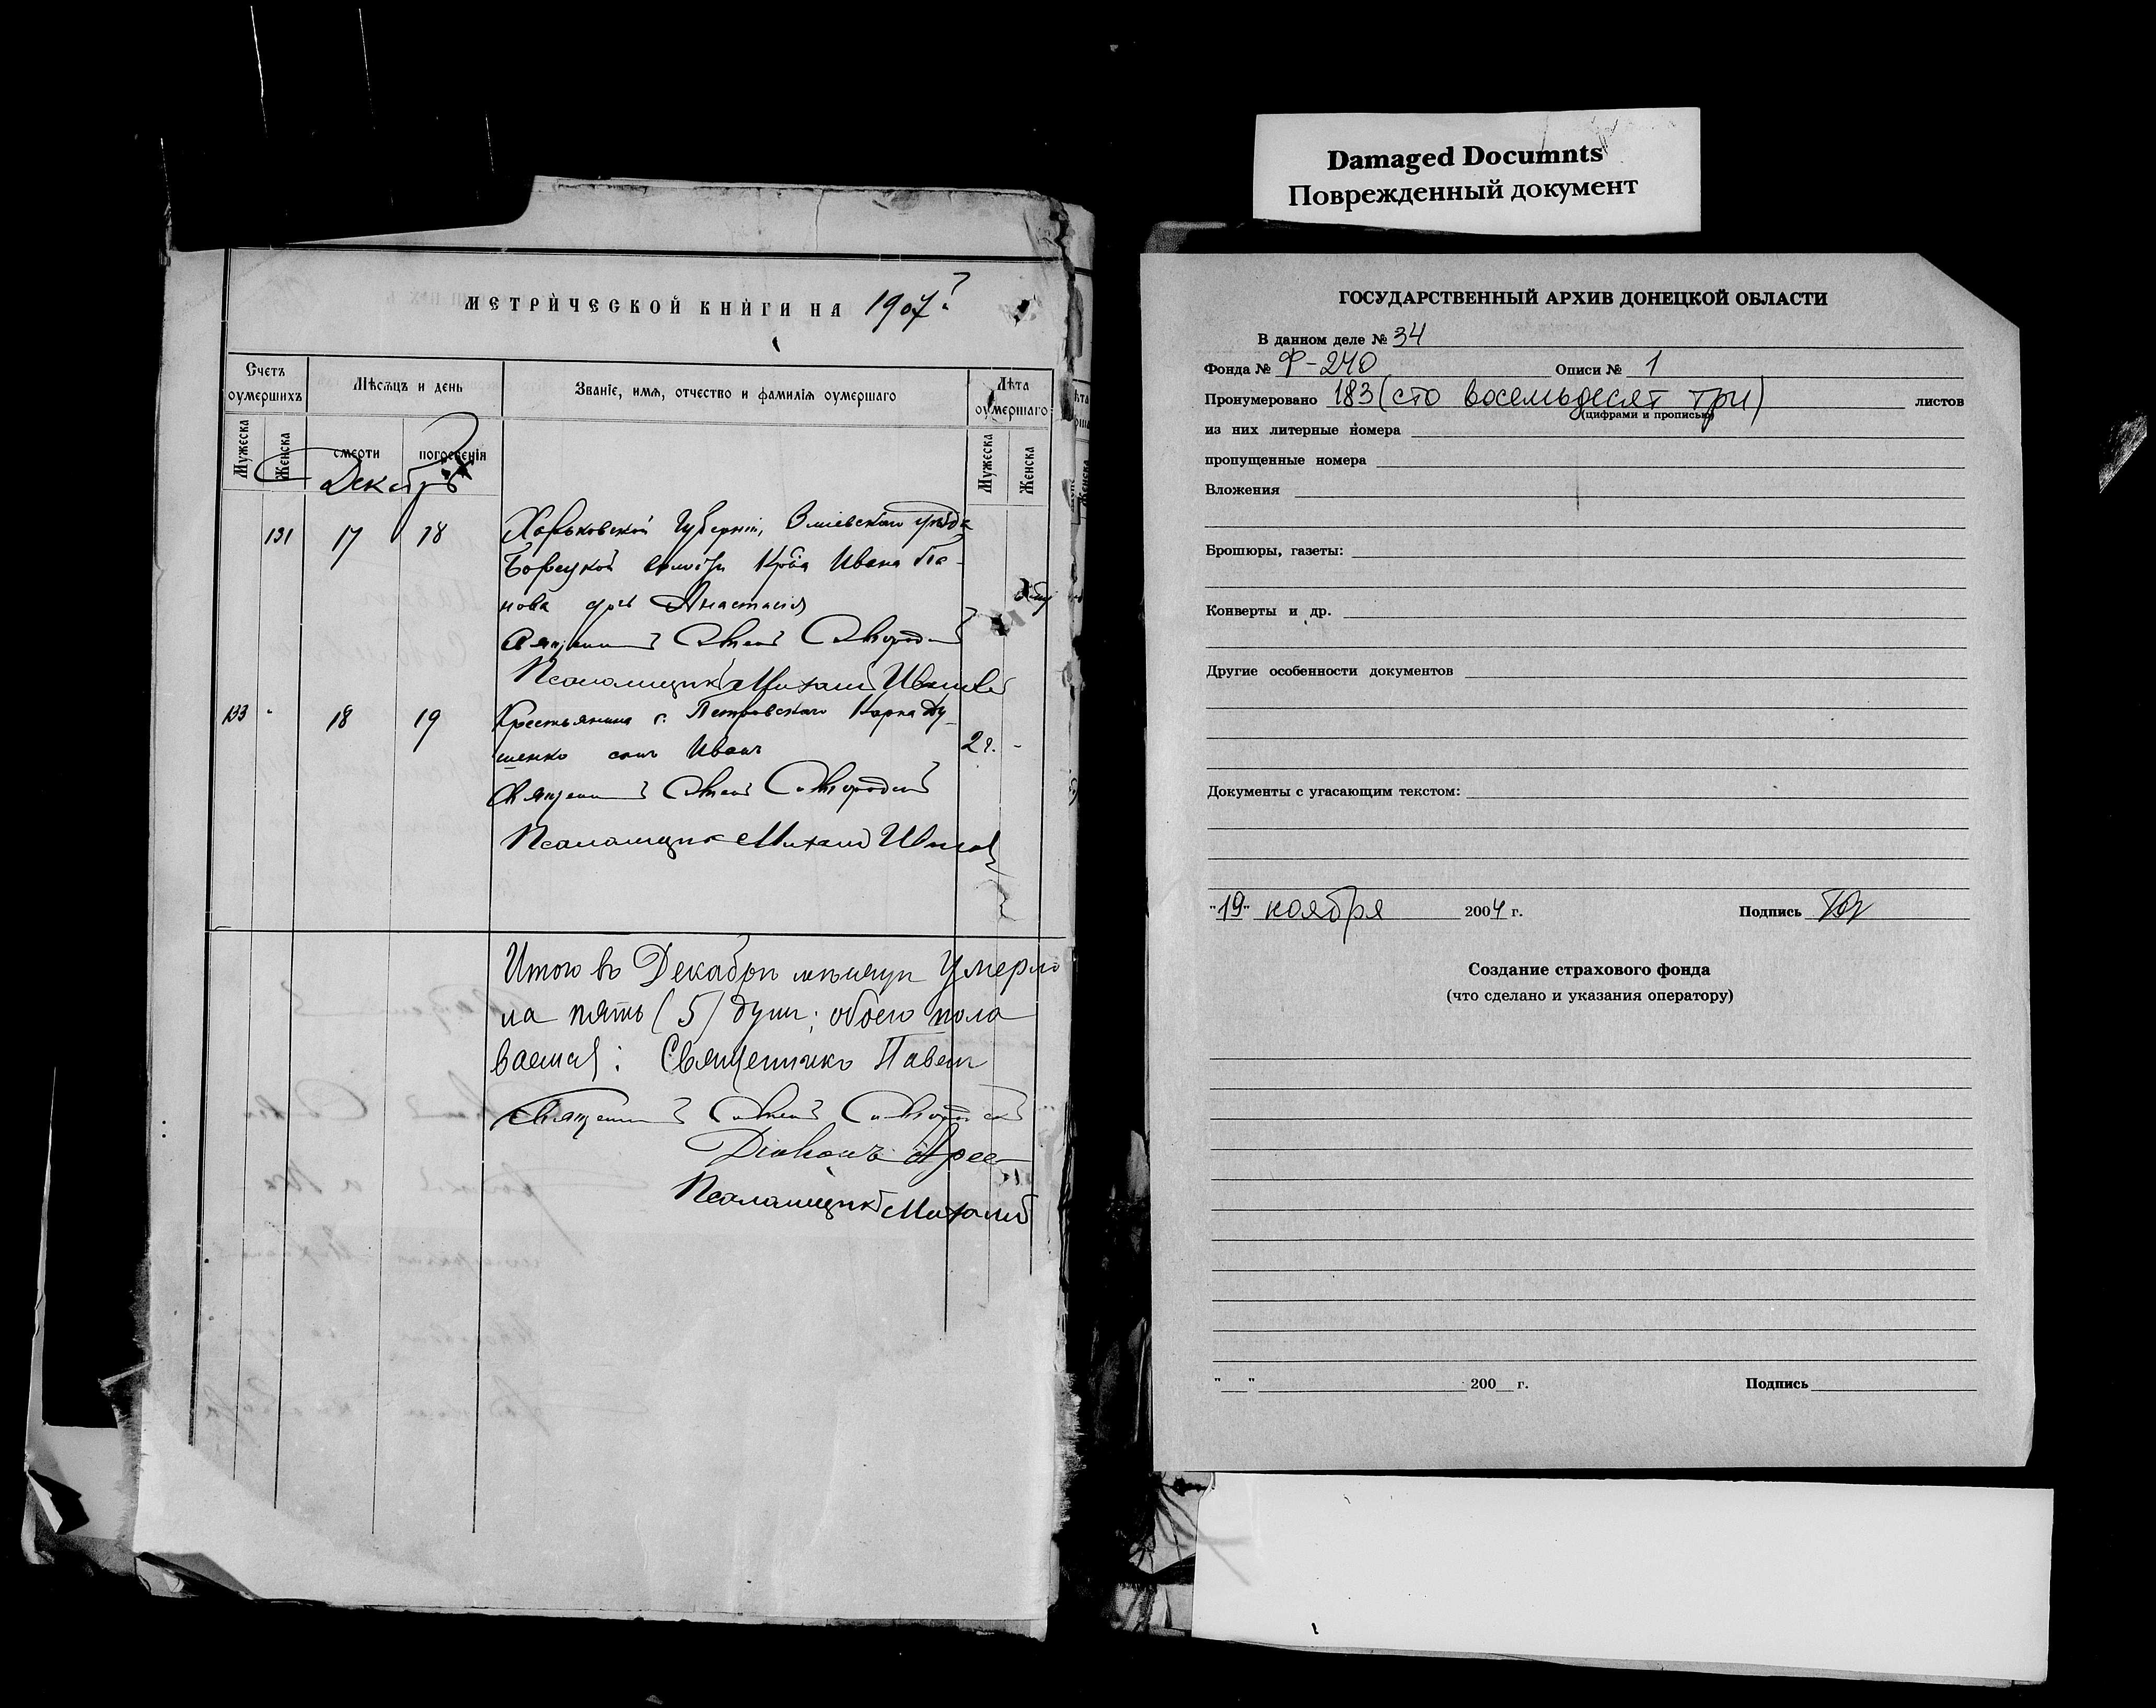 МЕТРИЧЕСКОЙ КНИГИ НА 1907 г.
Счетъ оумершихъ
Мѣсяцъ и день
Званіе, имя, отчество и фамилія оумершаго
Лѣта оумершаго
Мужеска
Женска
смерти
погребенія
Мужеска
Женска
Декабрь
131 17 18 Харьковской Губерніи, Зміевскаго уѣзда
Борецкой волости Кр-на Ивана Па-
нова дочь Анастасія
Священникъ
Псаломщикъ Михаилъ
133 " 18 19 Крестьянина с. Петровскаго Карпа
шенко сынъ Иванъ 2 г. -
Священникъ
Псаломщикъ Михаилъ
Итого въ Декабрѣ мѣсяцѣ умерло
на пять (5) душъ; обоего пола
Священникъ Павелъ
Священникъ
Діаконъ
Псаломщикъ Михаилъ
Damaged Documnts
Поврежденный документ
ГОСУДАРСТВЕННЫЙ АРХИВ ДОНЕЦКОЙ ОБЛАСТИ
В данном деле № 34
Фонда № Ф-240 Описи № 1
Пронумеровано 183 (сто восемьдесят три) листов
(цифрами и прописью)
из них литерные номера
пропущенные номера
Вложения
Брошюры, газеты:
Конверты и др.
Другие особенности документов
Документы с угасающим текстом:
"19" ноября 2004 г. Подпись
Создание страхового фонда
(что сделано и указания оператору)
"__" 200__ г. Подпись